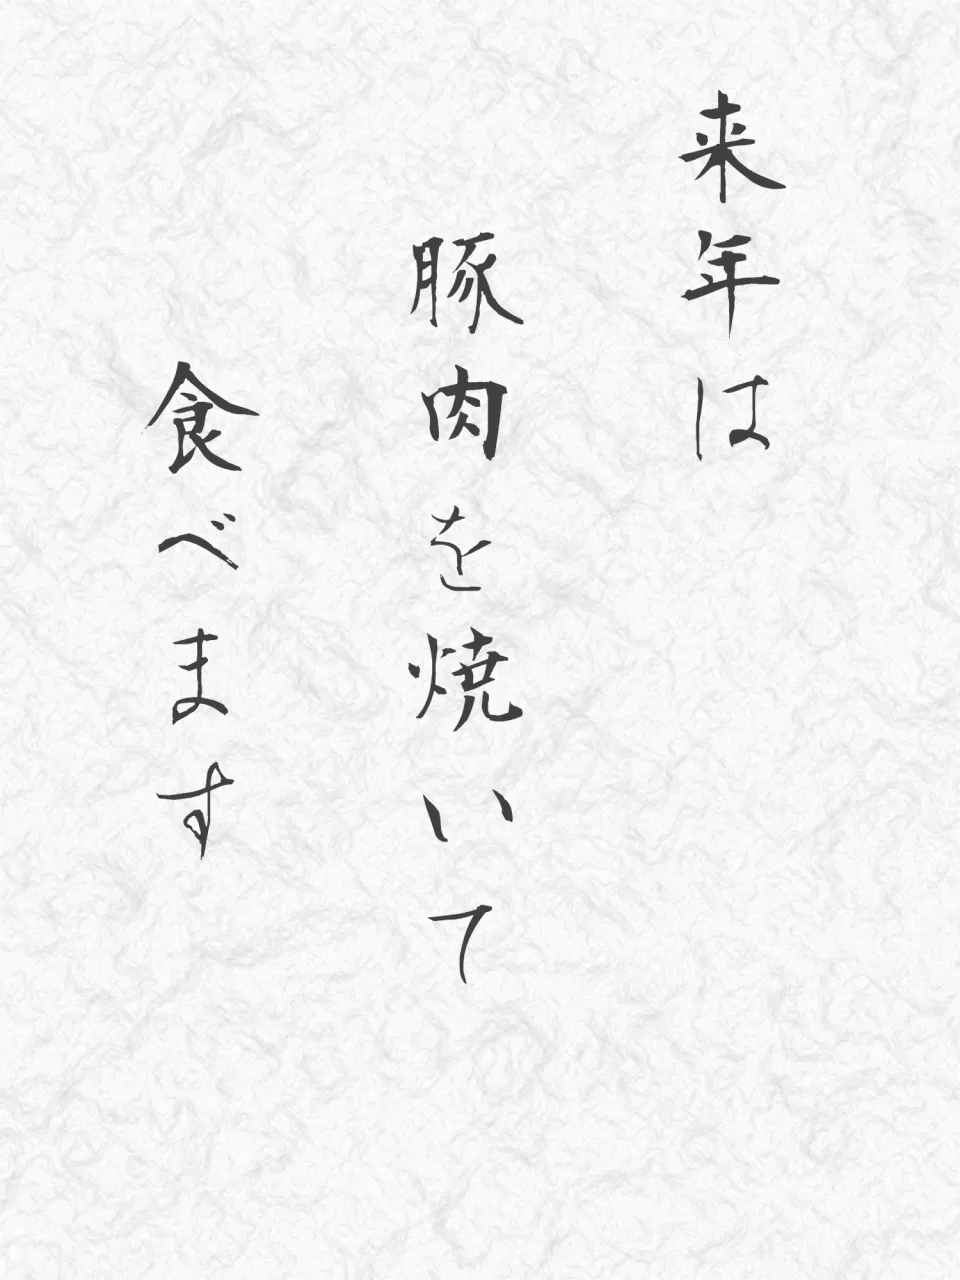 来年は
豚肉を焼いて
食べます